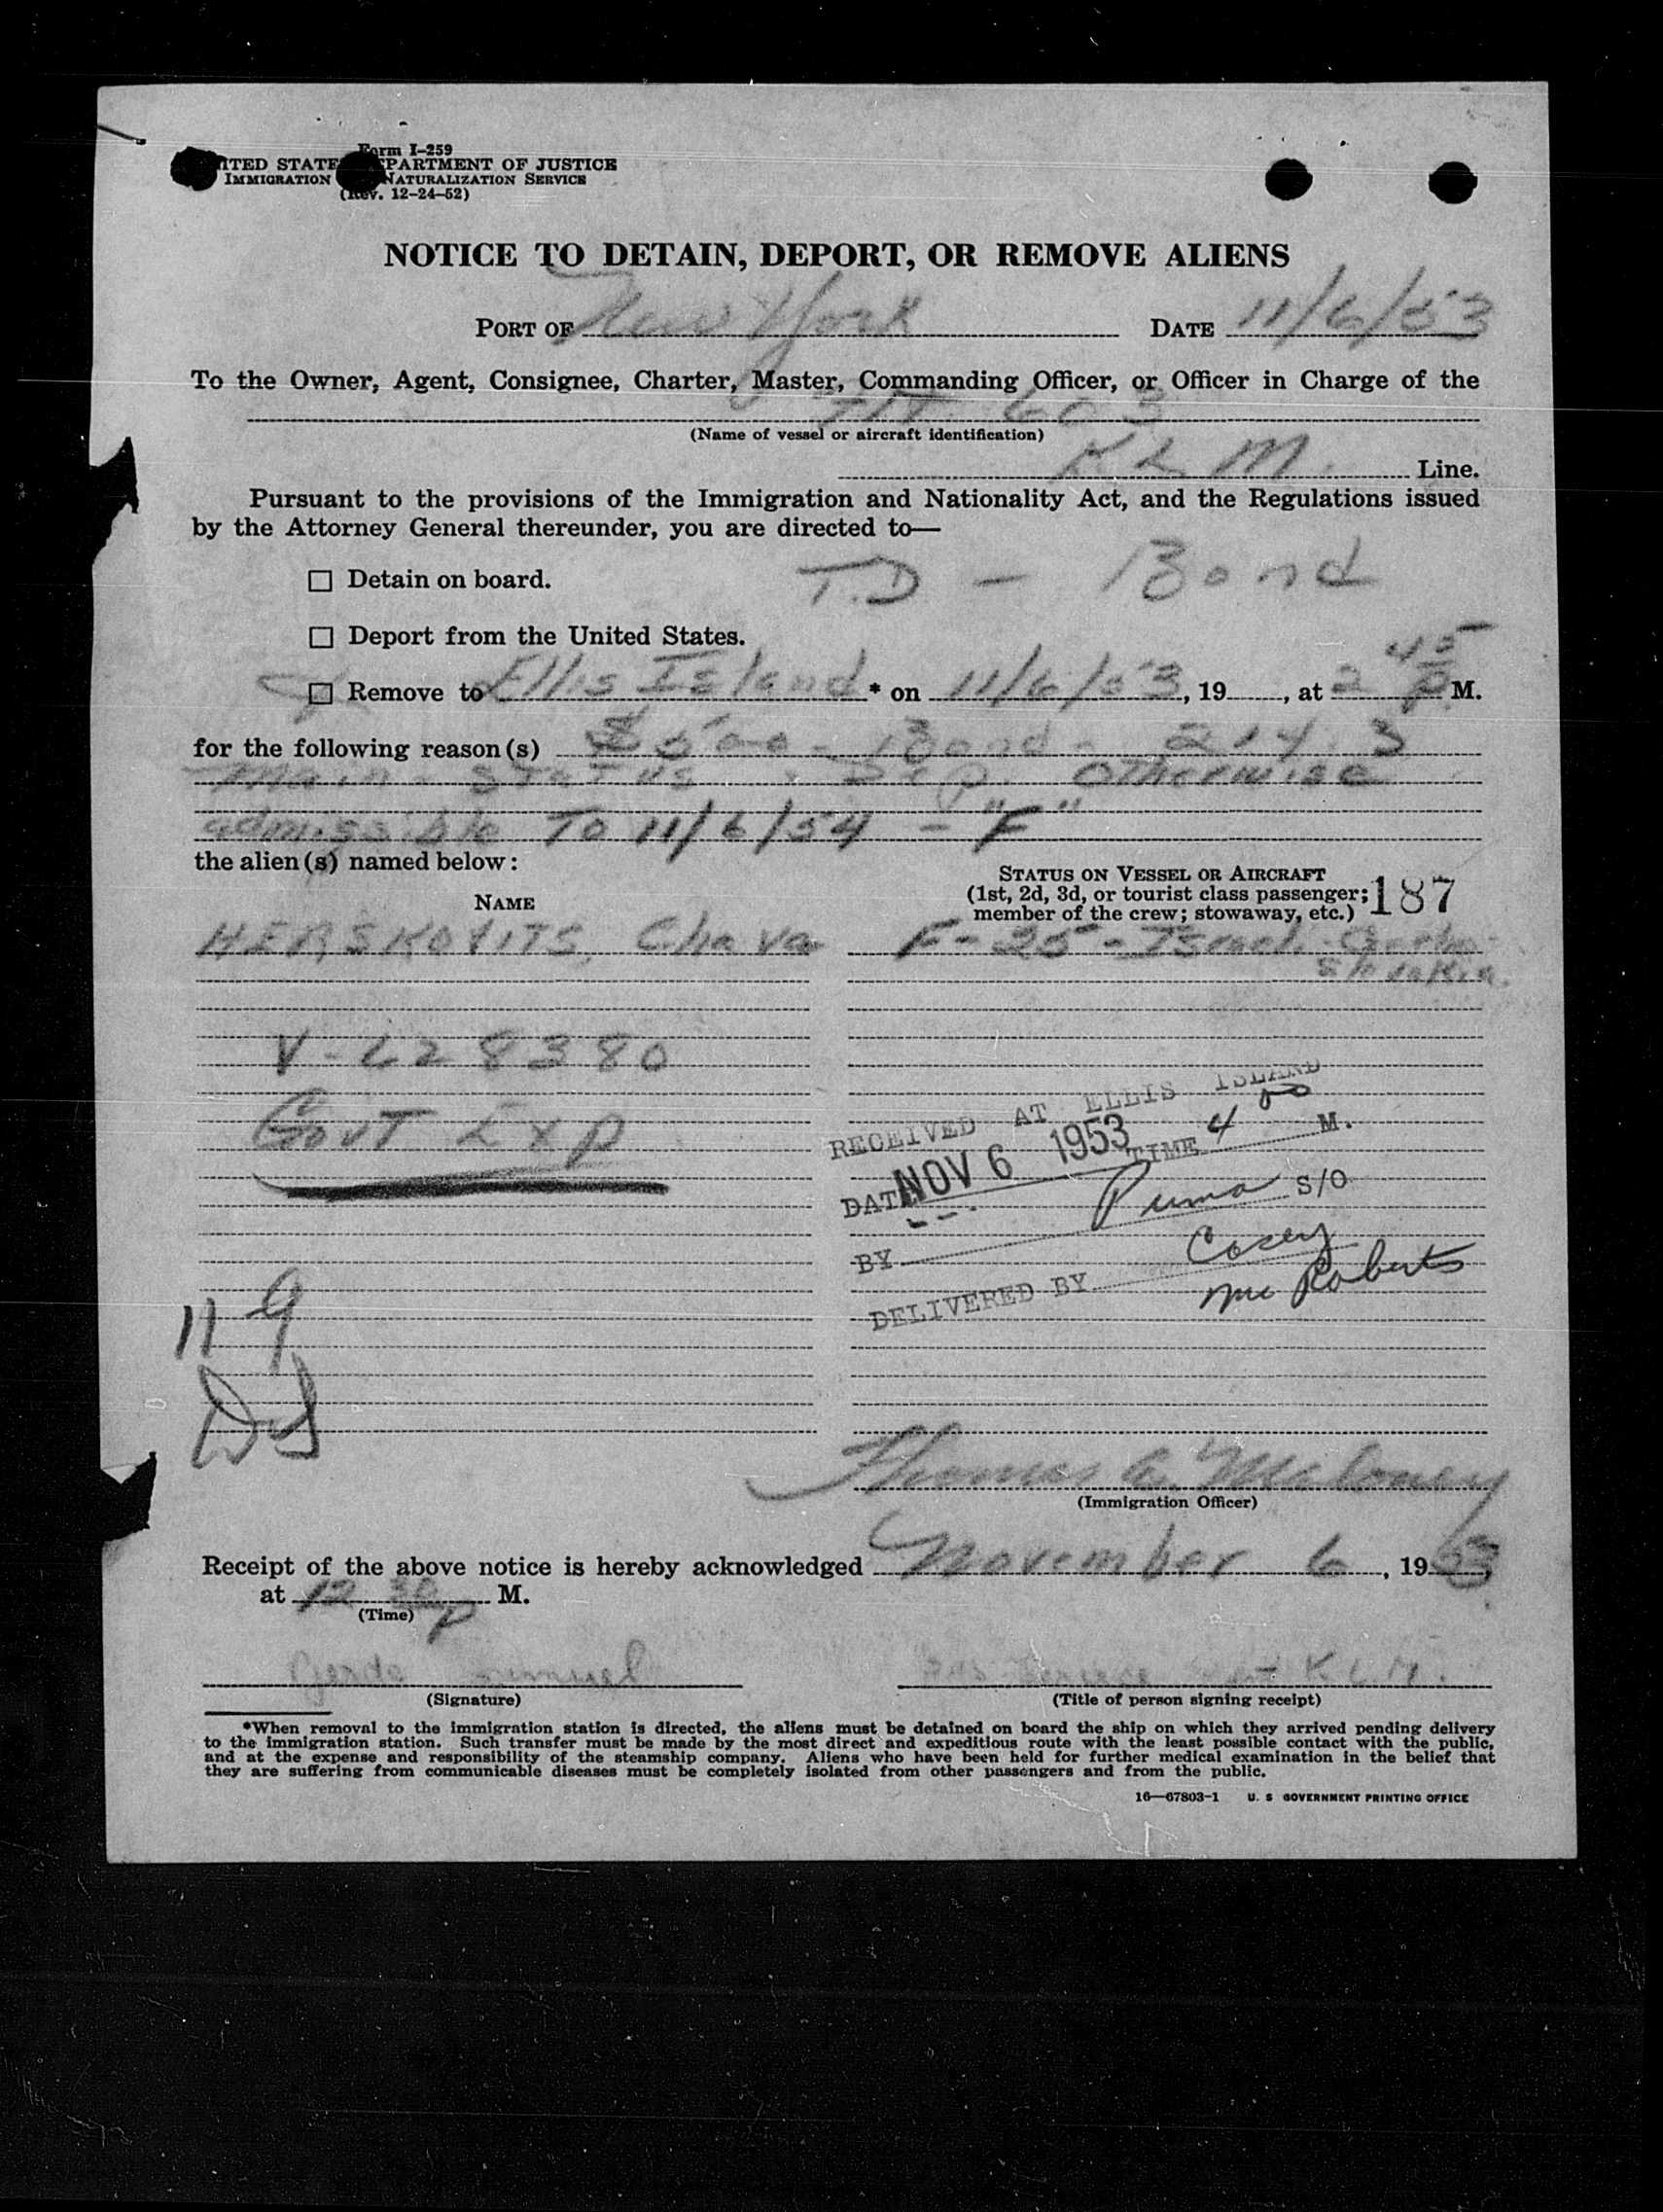 Form I-259
UNITED STATES DEPARTMENT OF JUSTICE
IMMIGRATION NATURALIZATION SERVICE
(Rev. 12-24-52)
NOTICE TO DETAIN, DEPORT, OR REMOVE ALIENS
PORT OF New York DATE 11/6/53
To the Owner, Agent, Consignee, Charter, Master, Commanding Officer, or Officer in Charge of the
603
(Name of vessel or aircraft identification)
KLM Line.
Pursuant to the provisions of the Immigration and Nationality Act, and the Regulations issued
by the Attorney General thereunder, you are directed to—
☐ Detain on board. T.D - Bond
☐ Deport from the United States.
☐ Remove to Ellis Island * on 11/6/53, 19 , at 2 45 P M.
for the following reason(s) $500 - Bond - 214.3
Main. Status Dep. otherwise
admissible To 11/6/54 - "F"
the alien(s) named below:
STATUS ON VESSEL OR AIRCRAFT
(1st, 2d, 3d, or tourist class passenger;
member of the crew; stowaway, etc.) 187
NAME
HERSKOVITS, Chava F - 25 - Israeli
V-628380
Govt Exp
RECEIVED AT ELLIS ISLAND
DATE NOV 6 1953 TIME 4 00 M.
BY Puma S/O
DELIVERED BY Casey
McRoberts
11 9
Thomas A. Maloney
(Immigration Officer)
Receipt of the above notice is hereby acknowledged November 6, 1953
at 12 30 p M.
(Time)
K.L.M.
(Signature) (Title of person signing receipt)
*When removal to the immigration station is directed, the aliens must be detained on board the ship on which they arrived pending delivery
to the immigration station. Such transfer must be made by the most direct and expeditious route with the least possible contact with the public,
and at the expense and responsibility of the steamship company. Aliens who have been held for further medical examination in the belief that
they are suffering from communicable diseases must be completely isolated from other passengers and from the public.
16—67803-1 U. S GOVERNMENT PRINTING OFFICE